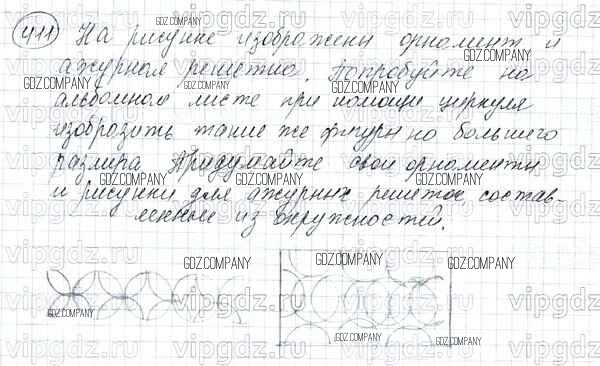 411 На рисунке изображены орнамент и
ажурная решетка. Попробуйте на
альбомном листе при помощи циркуля
изобразить такие же фигуры но большего
размера Придумайте свои орнаменты
и рисунки для ажурных решеток, состав-
ленные из окружностей.